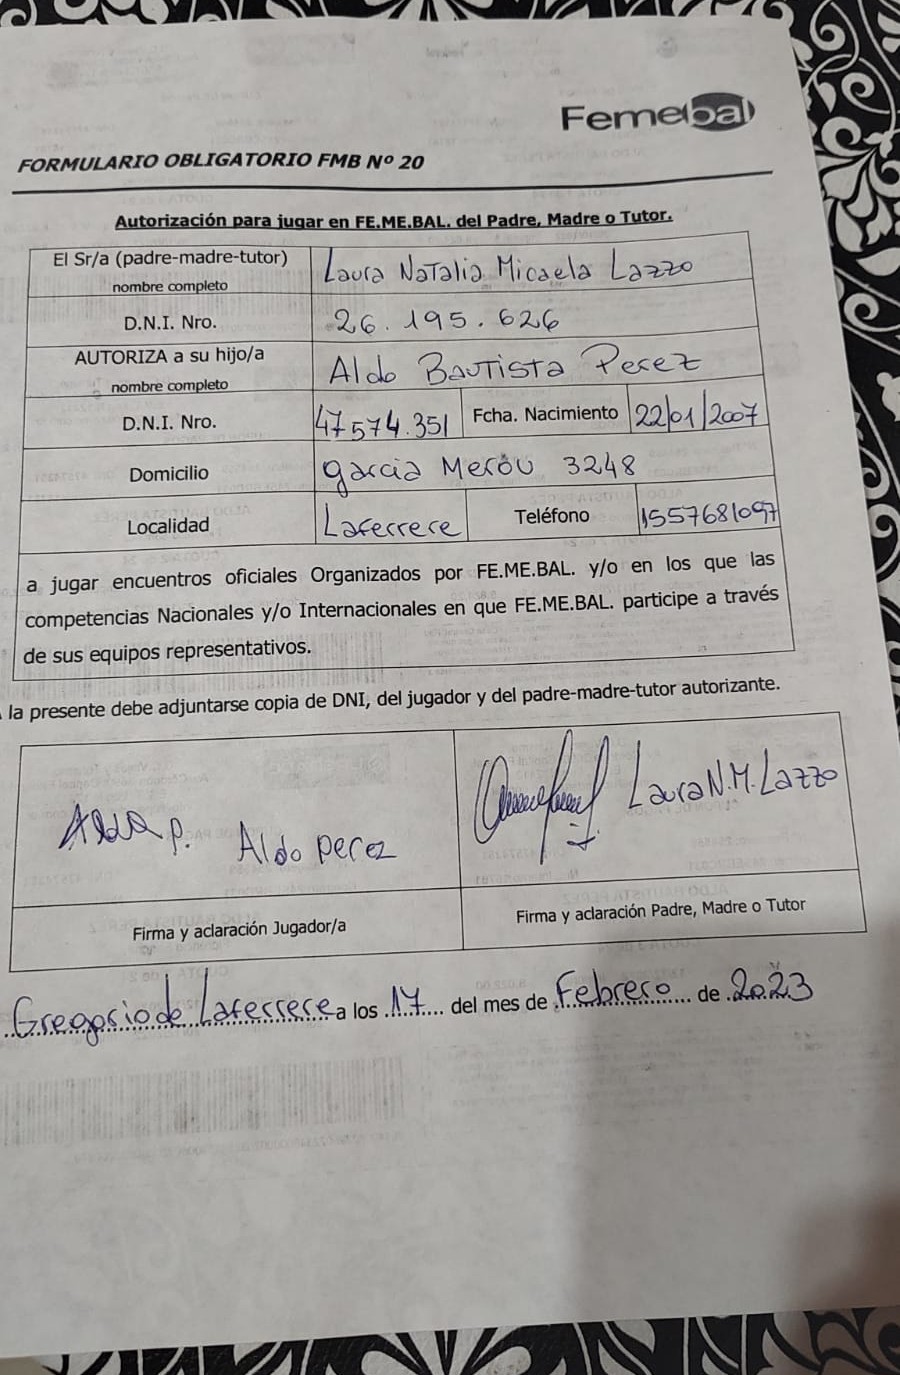 Femebal
FORMULARIO OBLIGATORIO FMB Nº 20
Autorización para jugar en FE.ME.BAL. del Padre, Madre o Tutor.
El Sr/a (padre-madre-tutor) Laura Natalia Micaela Lazzo
nombre completo
D.N.I. Nro. 26.195.626
AUTORIZA a su hijo/a Aldo Bautista Perez
nombre completo
D.N.I. Nro. 47574.351 Fcha. Nacimiento 22/01/2007
Domicilio garcia Merou 3248
Localidad Laferrere Teléfono 1557681097
a jugar encuentros oficiales Organizados por FE.ME.BAL. y/o en los que las
competencias Nacionales y/o Internacionales en que FE.ME.BAL. participe a través
de sus equipos representativos.
la presente debe adjuntarse copia de DNI, del jugador y del padre-madre-tutor autorizante.
Laura N.M. Lazzo
P. Aldo perez
Firma y aclaración Jugador/a Firma y aclaración Padre, Madre o Tutor
Gregorio de Laferrere a los 17 del mes de Febrero de 2023